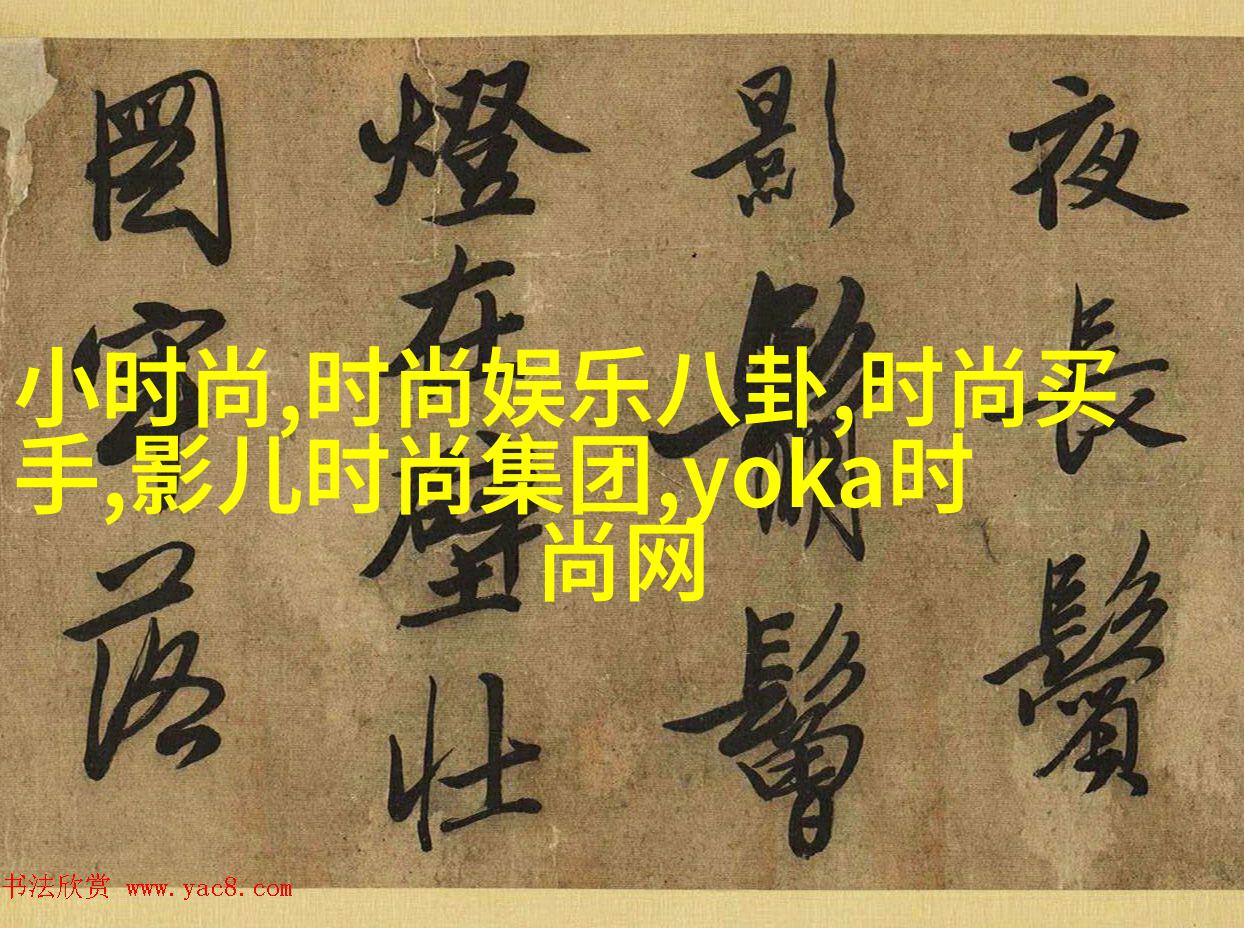 夜長鬢
影鬅鬙
燈在壁壯
圖空落
小时尚,时尚娱乐八卦,时尚买
手,影儿时尚集团,yoka时
尚网
书法欣赏 www.yac8.com